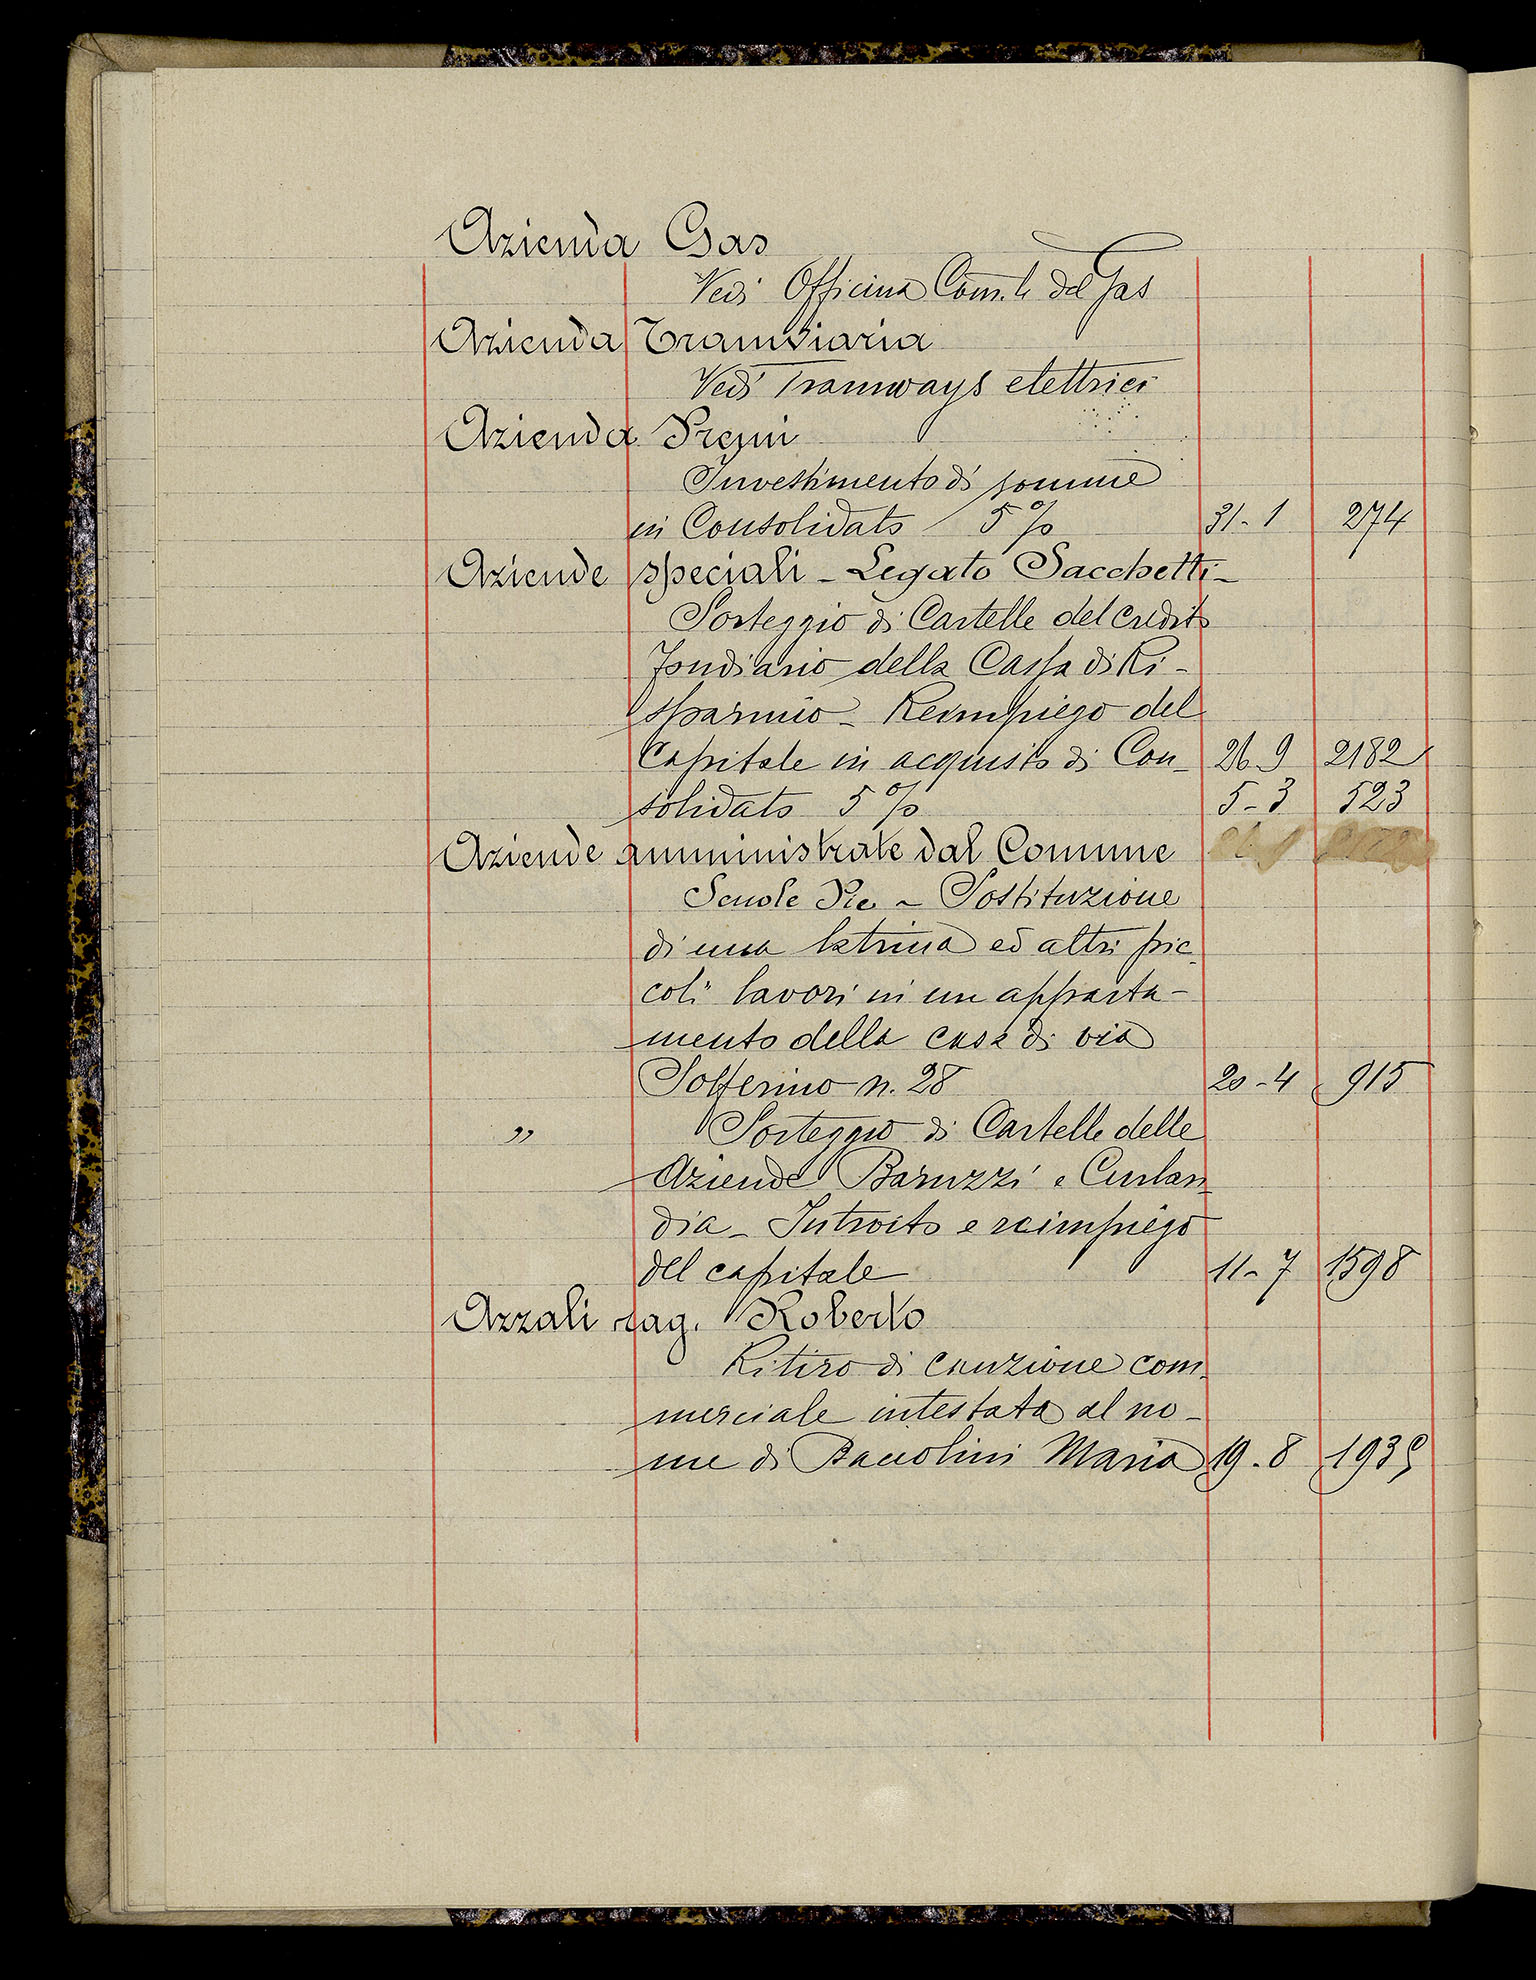 Azienda Gas
Vedi Officina Com.le del Gas
Azienda Tramviaria
Vedi Tramways elettrici
Azienda Premi
Investimento di somme
in Consolidato 5% 31-1 274
Aziende speciali - Legato Sacchetti -
Sorteggio di Cartelle del Credito
fondiario della Cassa di Ri-
sparmio - Reimpiego del
Capitale in acquisto di Con- 26-9 2182
solidato 5% 5-3 523
Aziende amministrate dal Comune
Scuole Pie - Sostituzione
di una latrina ed altri pic-
coli lavori in un apparta-
mento della casa di via
Solferino n. 28 20-4 915
" Sorteggio di Cartelle delle
Aziende Baruzzi e Curlan-
dia - Introito e reimpiego
del capitale 11-7 1598
Azzali rag. Roberto
Ritiro di cauzione com-
merciale intestata al no-
me di Baccolini Maria 19-8 1939